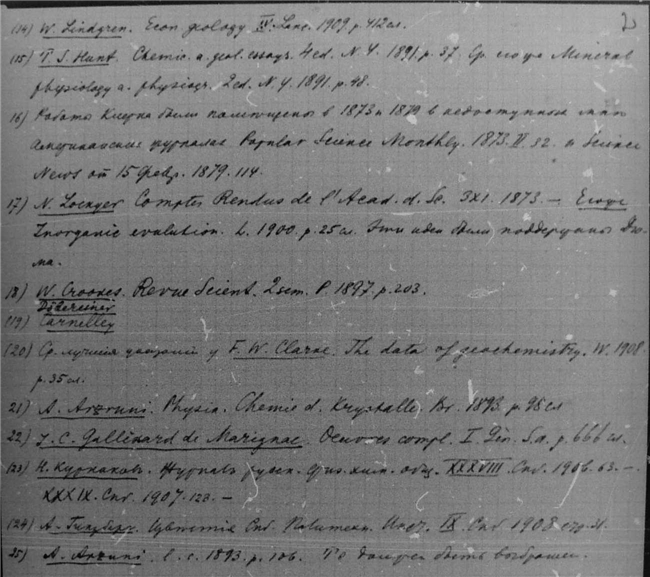 2
(14) W. Lindgren. Econ. geology. IV. Lanc. 1909. p. 412 сл.
(15) T. S. Hunt. Chemic. a. geol. essays. 4 ed. N. Y. 1891. p. 37. Ср. его же Mineral
physiology a. physiogr. 2 ed. N. Y. 1891. p. 48.
16) Работы были помещены в 1873 и 1879 в недоступных мне
американских журналах Popular Science Monthly. 1873. II. 32. и Science
News от 15 февр. 1879. 114.
17) N. Lockyer Comptes Rendus de l'Acad. d. Sc. 3 XI. 1873. — Его же
Inorganic evolution. L. 1900. p. 25 сл. Эти идеи были поддержаны
18) W. Crookes. Revue Scient. 2 sem. P. 1897. p. 203.
Döbereiner
(19) Carnelley
(20) Ср. лучшие у F. W. Clarke. The data of geochemistry. W. 1908.
p. 35 сл.
21) A. Arzruni. Physik. Chemie d. Krystalle. Br. 1893. p. 96 сл
22) J. C. Gallissard de Marignac. Oeuvres compl. I. Gen. S. a. p. 666 сл.
(23) Н. Курнаков. Журналъ русск. физ. хим. общ. XXXVIII. Спб. 1906. 63. —
XXXIX. Спб. 1907. 123. —
(24) А. Гинзберг. Спб. Политехн. Инст. IX. Спб. 1908 стр.
25) A. Arzruni. l. c. 1893. p. 106.